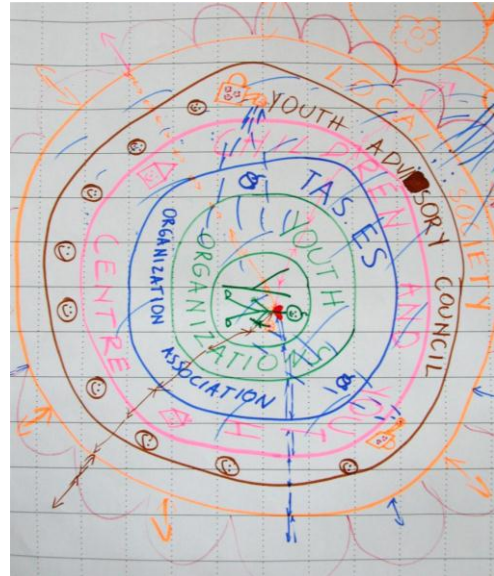 LOCAL SOCIETY
YOUTH ADVISORY COUNCIL
CHILDREN AND YOUTH CENTRE
TAS ES
ORGANIZATION ASSOCIATION
YOUTH ORGANIZATION